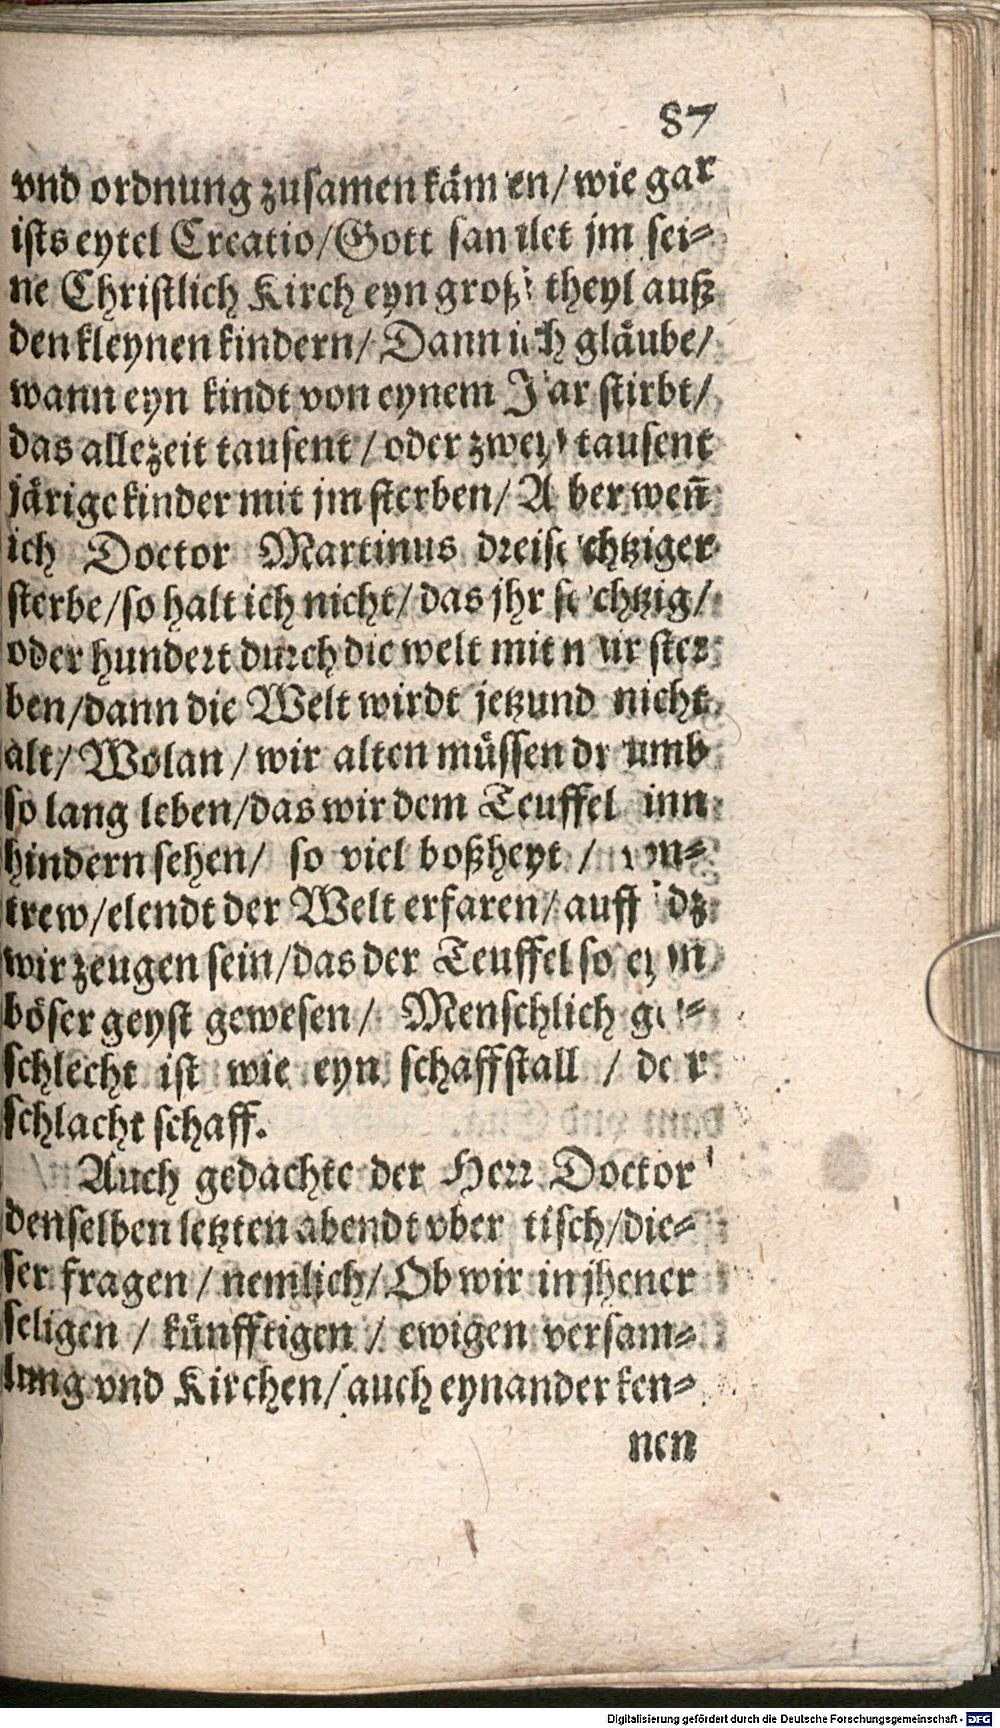 87
vnd ordnung zusamen kämen/ wie gar
ists eytel Creatio/ Gott samlet jm sei⸗
ne Christlich Kirch eyn groß theyl auß
den kleynen kindern/ Dann ich gläube/
wann eyn kindt von eynem Jar stirbt/
das allezeit tausent / oder zwey tausent
järige kinder mit jm sterben/ Aber weñ
ich Doctor Martinus dreisechtziger
sterbe/ so halt ich nicht/ das jhr sechtzig/
oder hundert durch die welt mit mir ster
ben/ dann die Welt wirdt jetzund nicht
alt/ Wolan / wir alten müssen drumb
so lang leben/ das wir dem Teuffel inn
hindern sehen/ so viel boßheyt / vn⸗
trew/ elendt der Welt erfaren/ auff dz
wir zeugen sein/ das der Teuffel so eyn
böser geyst gewesen/ Menschlich ge⸗
schlecht ist wie eyn schaffstall / der
schlacht schaff.
Auch gedachte der Herr Doctor
denselben letzten abendt vber tisch/ die⸗
ser fragen / nemlich/ Ob wir in jhener
seligen / künfftigen / ewigen versam⸗
lung vnd Kirchen/ auch eynander ken⸗
nen
Digitalisierung gefördert durch die Deutsche Forschungsgemeinschaft - DFG